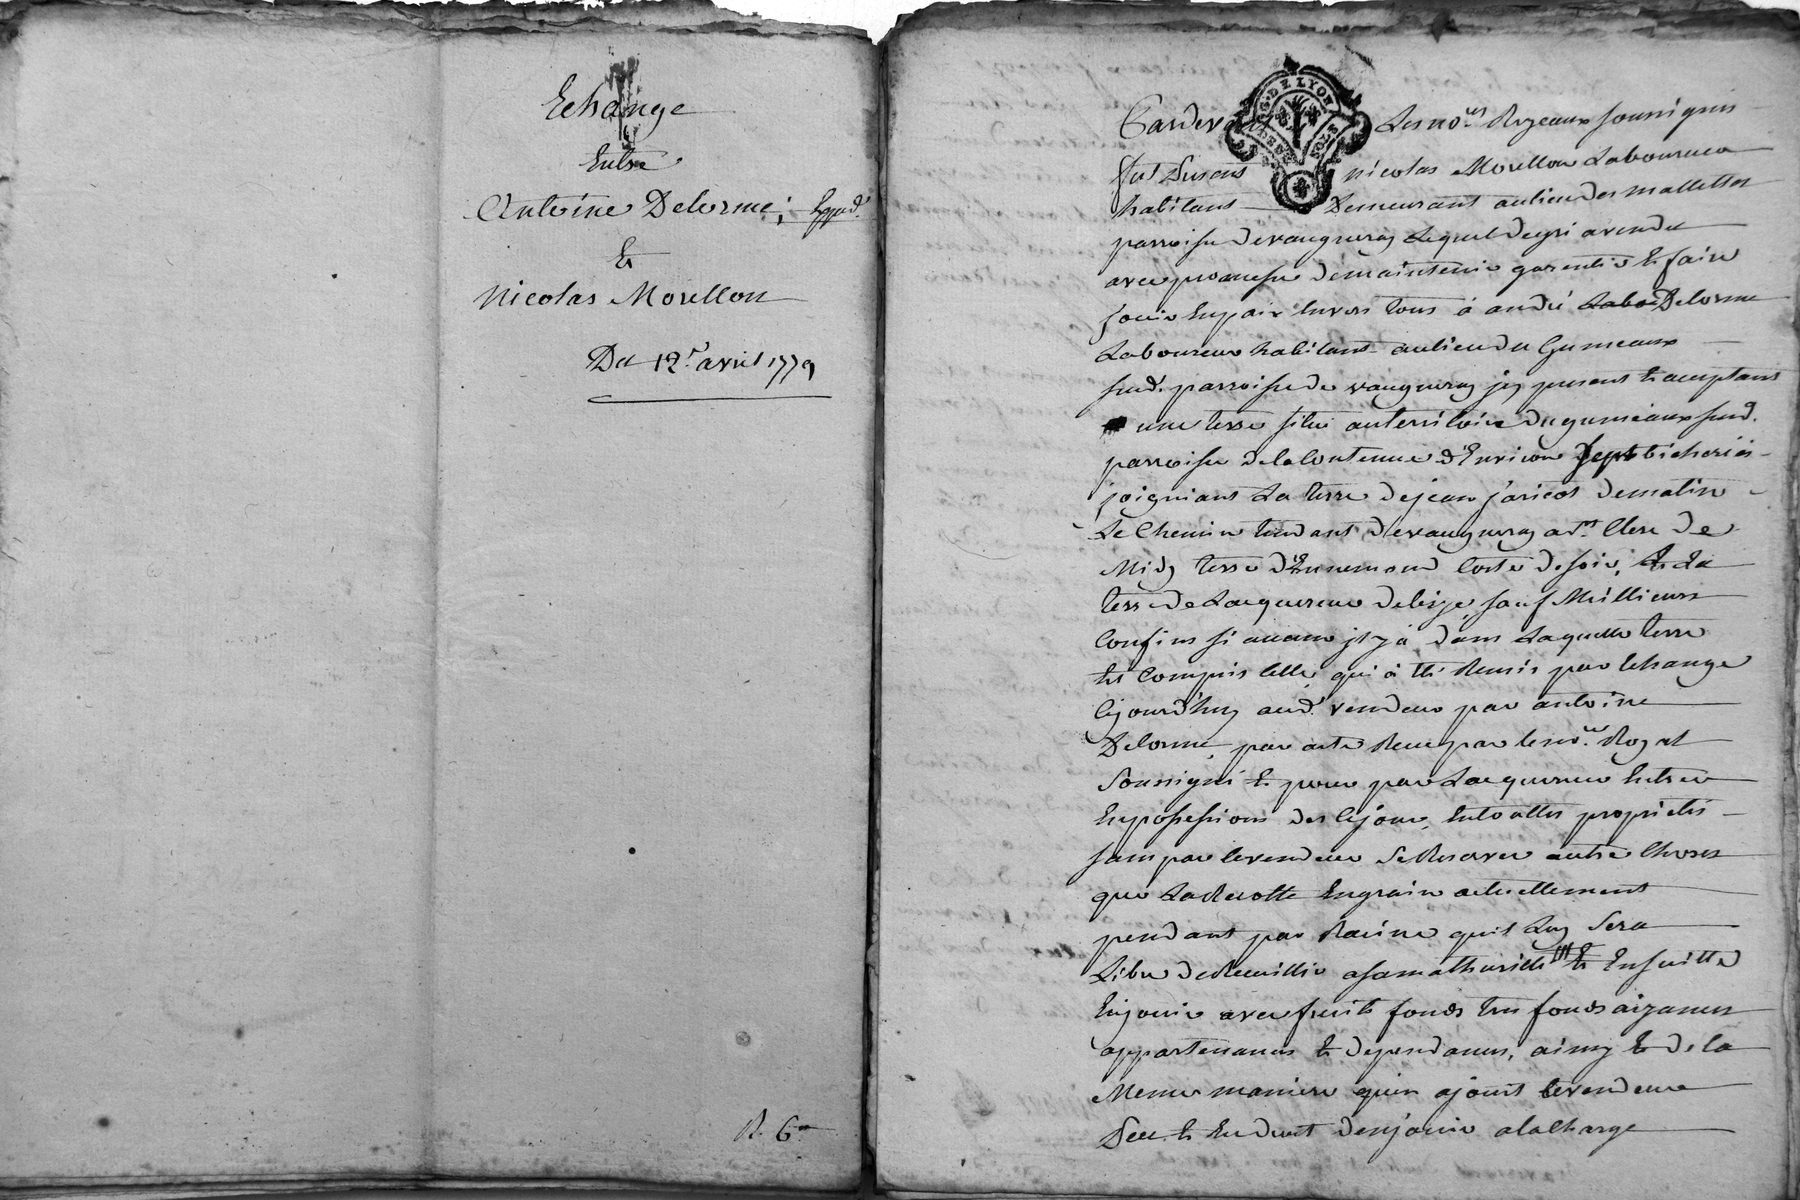 Echange
Entre
Antoine Delorme, Expéd.
Et
Nicolas Morellon
Du 12.e avril 1779
R. 6
G. DE LYON
SOUS
Pardevant Les no.res Royeaux soussignés
fut présent nicolas Morellon Laboureur
habitant Demeurant au lieu des mallettes
parroisse de vaugneray Lequel de gré a vendu
avec promesse de maintenir garentir et faire
jouir en paix envers tous à andré Labo Delorme
Laboureur habitant au lieu du Gumeaux
susd. parroisse de vaugneray icy present et acceptant
une terre située au territoire du gumeaux susd.
parroisse de la Contenue d'Environ sept bicherées
joignant La terre de jean jaricot de matin
Le Chemin tendant de vaugneray a st. Clere de
Midy terre d'Ennemond Coste de soir, et La
terre de Lacquereur de bize sauf Meillieurs
Confins si aucuns il y a dans Laquelle terre
est Compris Celle qui a été Remis par Echange
Cejourd'huy aud. vendeur par antoine
Delorme par acte Reçu par le no.re Royal
Soussigné et pour par Lacquereur Entrer
En possession des Cejour, En toutes propriétés
sans par le vendeur se Reserver autre Choses
que La Recolte En grain actuellement
pendant par Racine qu'il Luy Sera
Libre de Recuillir a sa mathurité et Ensuitte
En jouir avec fruits fonds tres fonds aizances
appartenances et dependances, ainsy et de la
Meme maniere qu'en a jouit le vendeur
Deu et En droit d'en jouir a la Charge